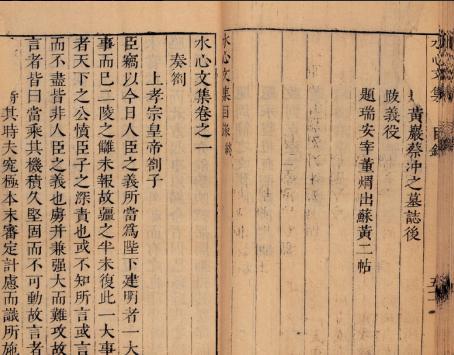 水心文集 目錄
黃巖蔡冲之墓誌後
跋義役
題瑞安宰董煟出蘇黃二帖
水心文集目錄終
水心文集卷之一
奏劄
上孝宗皇帝劄子
臣竊以今日人臣之義所當爲陛下建明者一大
事而巳二陵之讎未報故疆之半未復此一大事
者天下之公憤臣子之深責也或不知所言或言
而不盡皆非人臣之義也虜并兼强大而難攻故
言者皆曰當乘其機積久堅固而不可動故言者
其時夫究極本末審定計慮而識所施